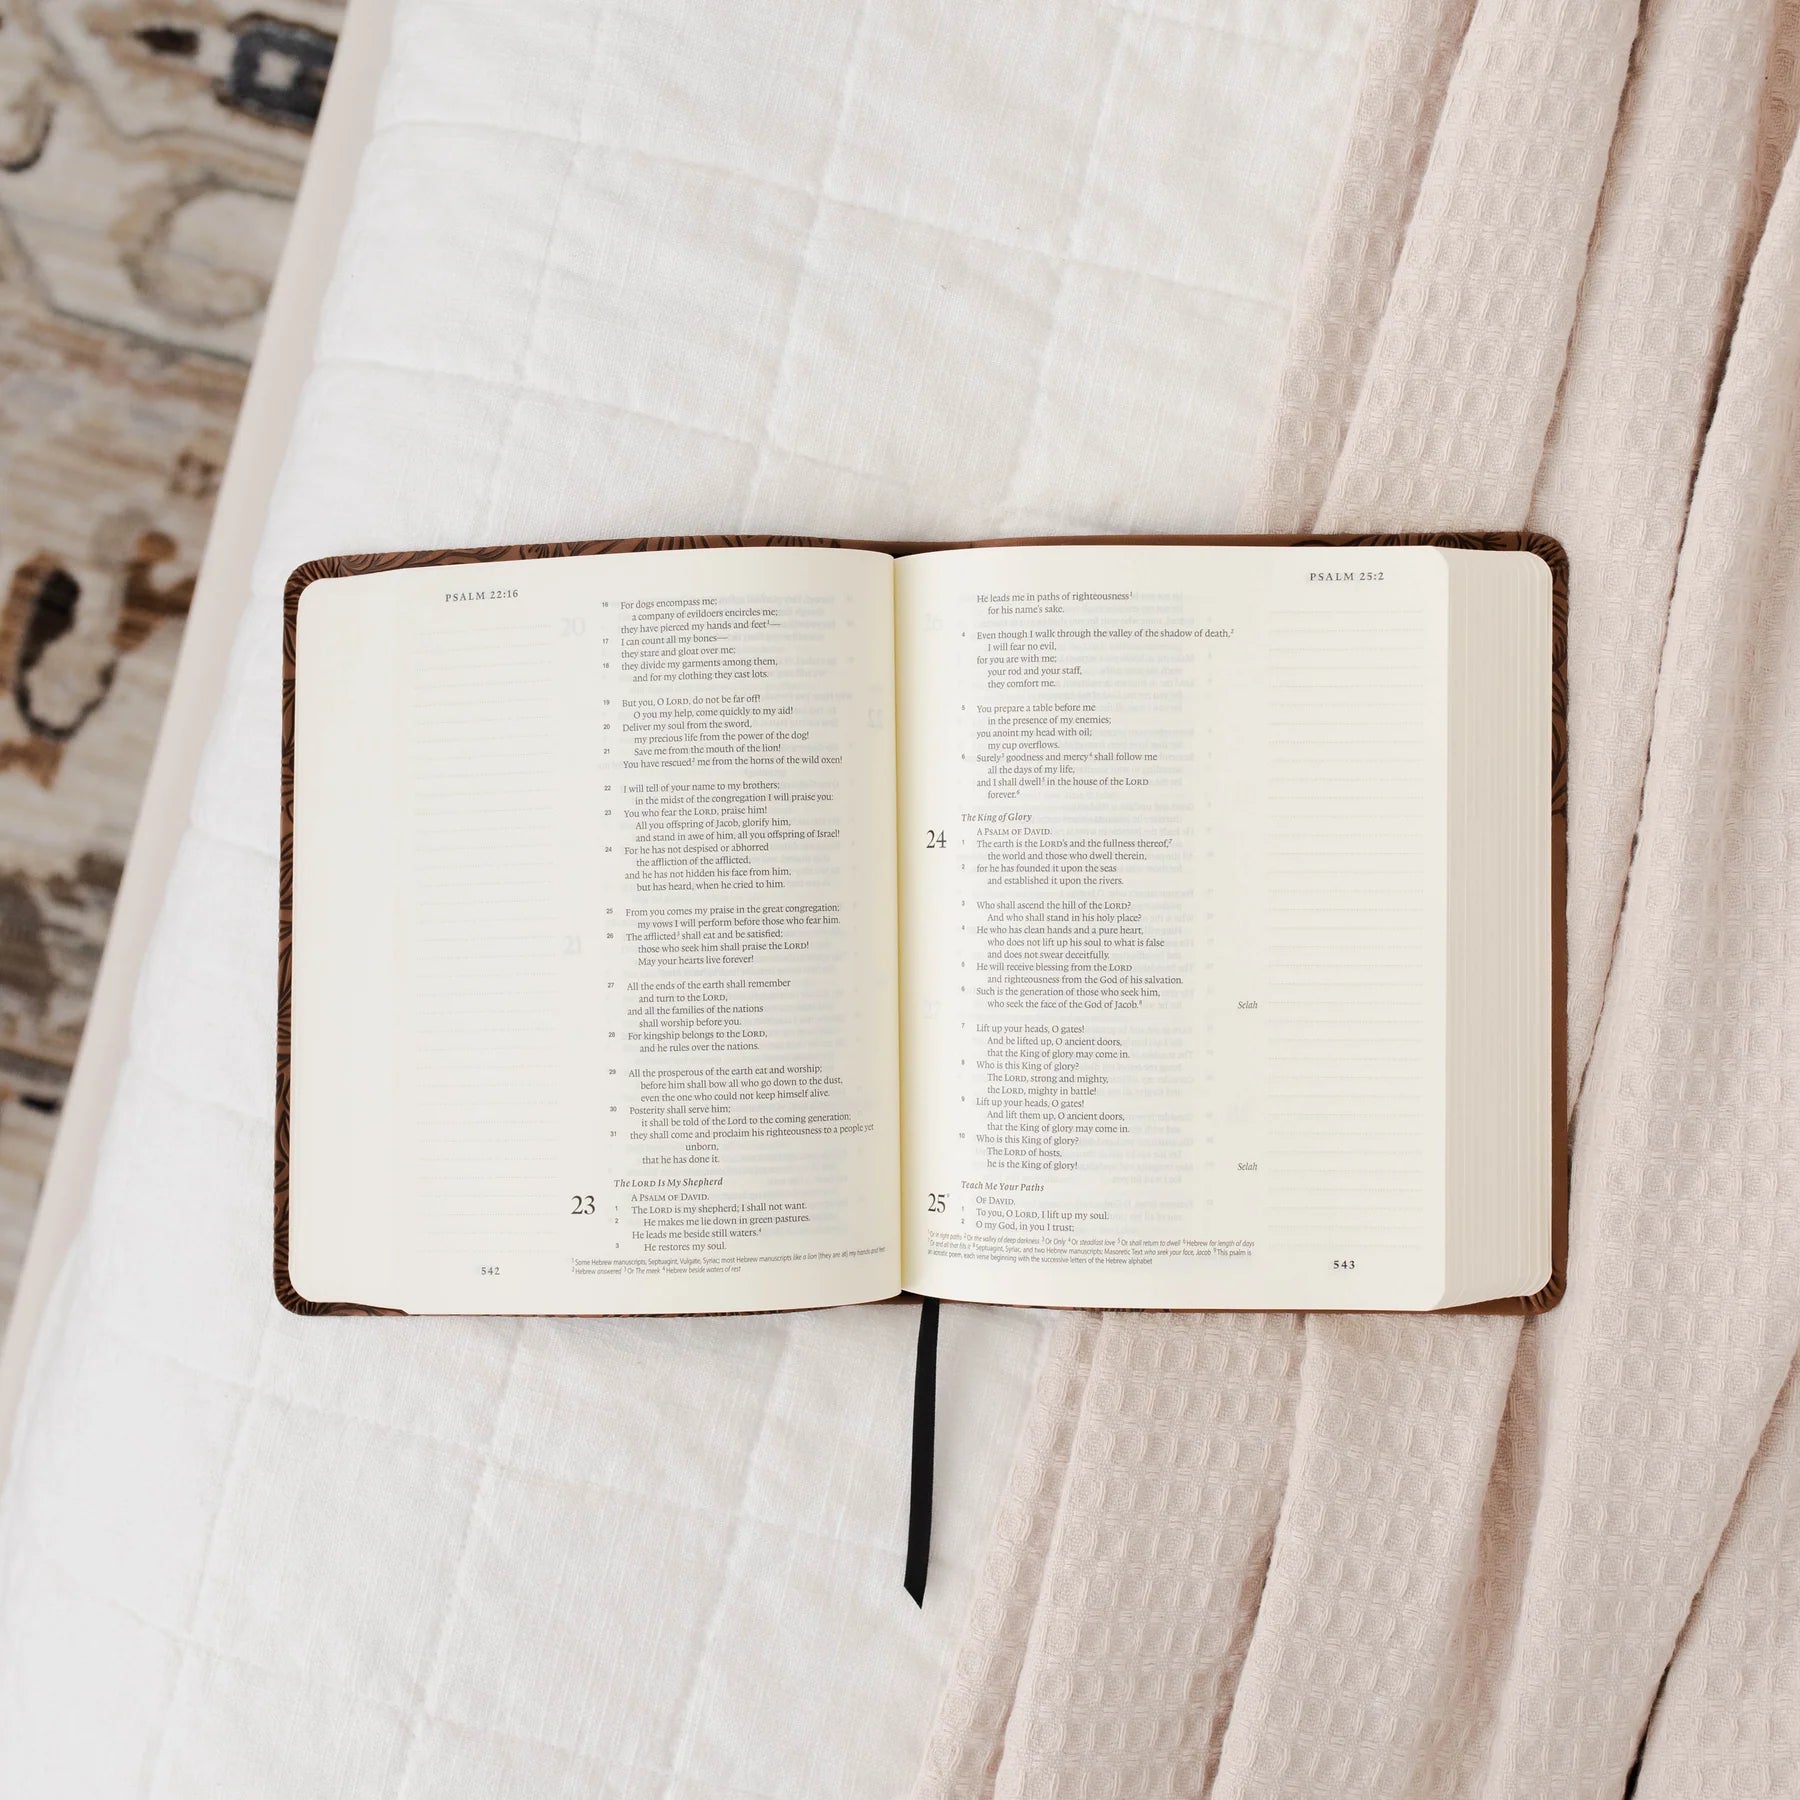 PSALM 22:16
16 For dogs encompass me;
a company of evildoers encircles me;
they have pierced my hands and feet1—
17 I can count all my bones—
they stare and gloat over me;
18 they divide my garments among them,
and for my clothing they cast lots.
19 But you, O LORD, do not be far off!
O you my help, come quickly to my aid!
20 Deliver my soul from the sword,
my precious life from the power of the dog!
21 Save me from the mouth of the lion!
You have rescued2 me from the horns of the wild oxen!
22 I will tell of your name to my brothers;
in the midst of the congregation I will praise you:
23 You who fear the LORD, praise him!
All you offspring of Jacob, glorify him,
and stand in awe of him, all you offspring of Israel!
24 For he has not despised or abhorred
the affliction of the afflicted,
and he has not hidden his face from him,
but has heard, when he cried to him.
25 From you comes my praise in the great congregation;
my vows I will perform before those who fear him.
26 The afflicted3 shall eat and be satisfied;
those who seek him shall praise the LORD!
May your hearts live forever!
27 All the ends of the earth shall remember
and turn to the LORD,
and all the families of the nations
shall worship before you.
28 For kingship belongs to the LORD,
and he rules over the nations.
29 All the prosperous of the earth eat and worship;
before him shall bow all who go down to the dust,
even the one who could not keep himself alive.
30 Posterity shall serve him;
it shall be told of the Lord to the coming generation;
31 they shall come and proclaim his righteousness to a people yet
unborn,
that he has done it.
The LORD Is My Shepherd
A PSALM OF DAVID.
23 1 The LORD is my shepherd; I shall not want.
2 He makes me lie down in green pastures.
He leads me beside still waters.4
3 He restores my soul.
1 Some Hebrew manuscripts, Septuagint, Vulgate, Syriac; most Hebrew manuscripts like a lion [they are at] my hands and feet
2 Hebrew answered 3 Or The meek 4 Hebrew beside waters of rest
542
PSALM 25:2
He leads me in paths of righteousness1
for his name's sake.
4 Even though I walk through the valley of the shadow of death,2
I will fear no evil,
for you are with me;
your rod and your staff,
they comfort me.
5 You prepare a table before me
in the presence of my enemies;
you anoint my head with oil;
my cup overflows.
6 Surely3 goodness and mercy4 shall follow me
all the days of my life,
and I shall dwell5 in the house of the LORD
forever.6
The King of Glory
A PSALM OF DAVID.
24 1 The earth is the LORD's and the fullness thereof,7
the world and those who dwell therein,
2 for he has founded it upon the seas
and established it upon the rivers.
3 Who shall ascend the hill of the LORD?
And who shall stand in his holy place?
4 He who has clean hands and a pure heart,
who does not lift up his soul to what is false
and does not swear deceitfully.
5 He will receive blessing from the LORD
and righteousness from the God of his salvation.
6 Such is the generation of those who seek him,
who seek the face of the God of Jacob.8 Selah
7 Lift up your heads, O gates!
And be lifted up, O ancient doors,
that the King of glory may come in.
8 Who is this King of glory?
The LORD, strong and mighty,
the LORD, mighty in battle!
9 Lift up your heads, O gates!
And lift them up, O ancient doors,
that the King of glory may come in.
10 Who is this King of glory?
The LORD of hosts,
he is the King of glory! Selah
Teach Me Your Paths
OF DAVID.
25 1 To you, O LORD, I lift up my soul.
2 O my God, in you I trust;
1 Or in right paths 2 Or the valley of deep darkness 3 Or Only 4 Or steadfast love 5 Or shall return to dwell 6 Hebrew for length of days
7 Or and all that fills it 8 Septuagint, Syriac, and two Hebrew manuscripts; Masoretic Text who seek your face, Jacob 9 This psalm is
an acrostic poem, each verse beginning with the successive letters of the Hebrew alphabet
543